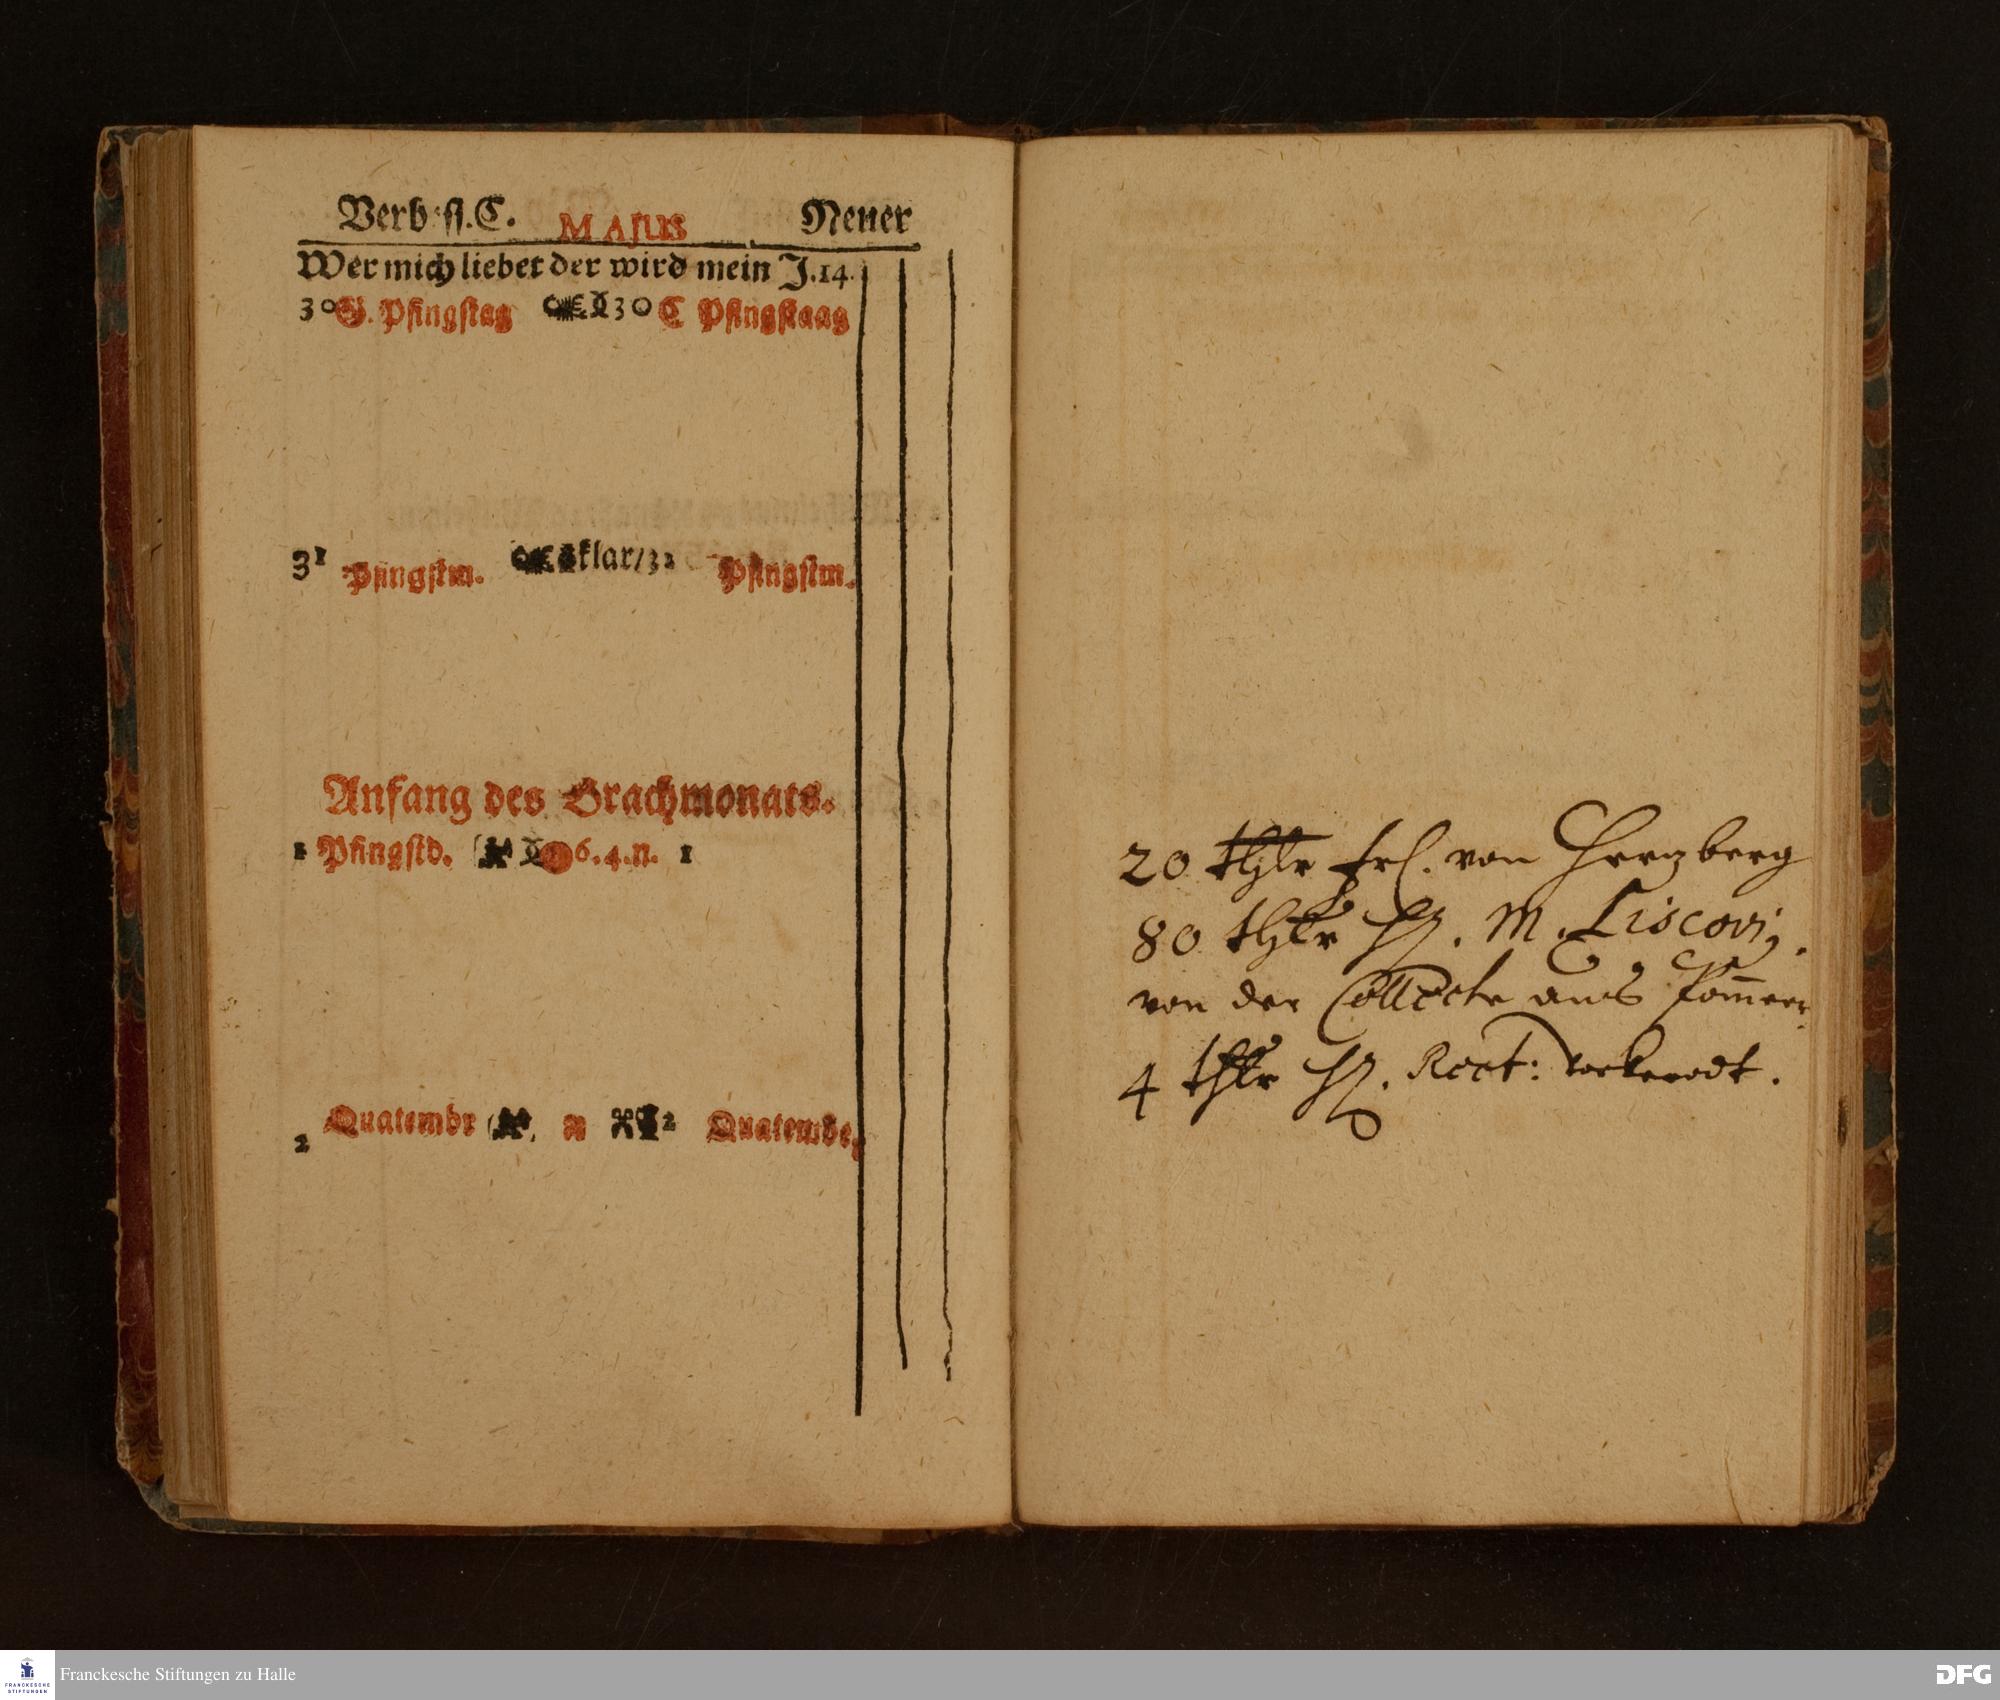 Verbess. C. MAJUS Neuer
Wer mich liebet der wird mein J. 14.
30 Pfingstag 30 C Pfingstaag
31 Pfingstm. klar/ 31 Pfingstm.
Anfang des Brachmonats.
1 Pfingstd. 6. 4. n. 1
2 Quatembr 2 Quatembe.
20 thlr frl. von Hertzberg
80 thlr H. M. Liscovij.
von der Collecte aus Pom̅ern.
4 thlr H. Rect: Vockerodt.
Franckesche Stiftungen zu Halle
FRANCKESCHE
STIFTUNGEN
DFG